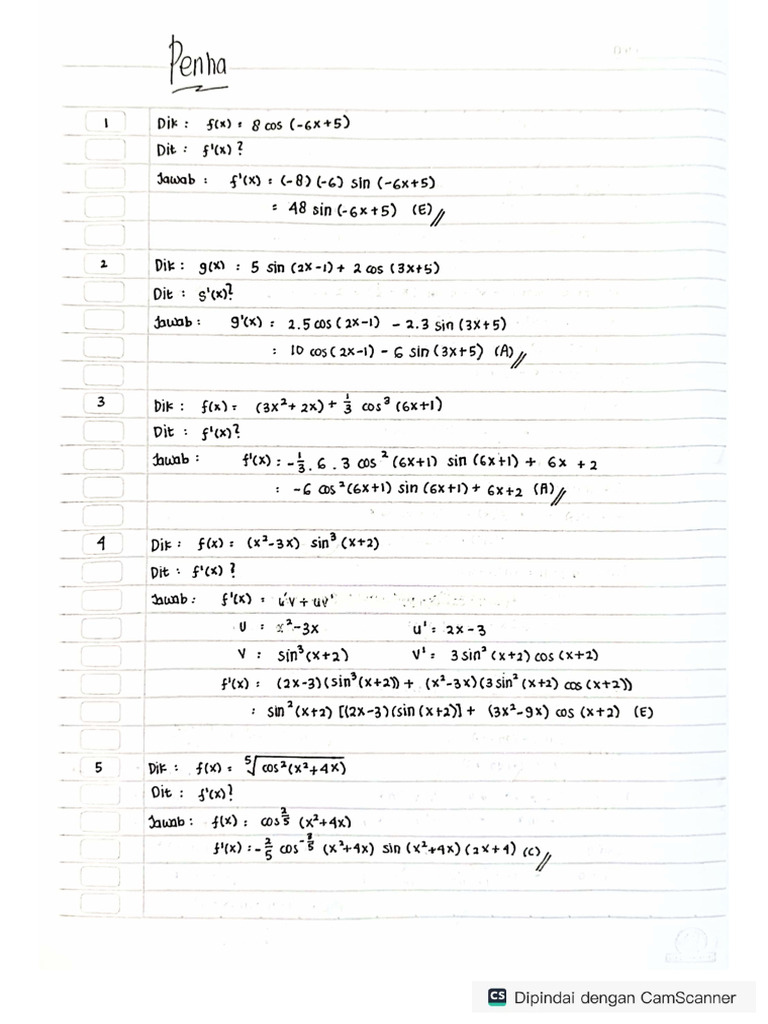 Penha
1 Dik : f(x) = 8 cos (-6x+5)
Dit : f'(x) ?
Jawab : f'(x) = (-8) (-6) sin (-6x+5)
= 48 sin (-6x+5) (E)
2 Dik : g(x) = 5 sin (2x-1) + 2 cos (3x+5)
Dit : g'(x)?
Jawab : g'(x) = 2.5 cos (2x-1) - 2.3 sin (3x+5)
= 10 cos (2x-1) - 6 sin (3x+5) (A)
3 Dik : f(x) = (3x²+2x) + 1/3 cos³ (6x+1)
Dit : f'(x)?
Jawab : f'(x) = -1/3 . 6 . 3 cos² (6x+1) sin (6x+1) + 6x + 2
= -6 cos² (6x+1) sin (6x+1) + 6x+2 (A)
4 Dik : f(x) = (x²-3x) sin³ (x+2)
Dit : f'(x) ?
Jawab : f'(x) = u'v + uv'
U = x²-3x u' = 2x-3
V = sin³(x+2) V' = 3 sin² (x+2) cos (x+2)
f'(x) = (2x-3)(sin³(x+2)) + (x²-3x)(3 sin² (x+2) cos (x+2))
= sin² (x+2) [(2x-3)(sin (x+2)] + (3x²-9x) cos (x+2) (E)
5 Dik : f(x) = ⁵√cos²(x²+4x)
Dit : f'(x)?
Jawab : f(x) = cos^2/5 (x²+4x)
f'(x) = -2/5 cos^-3/5 (x²+4x) sin (x²+4x) (2x+4) (C)
CS Dipindai dengan CamScanner